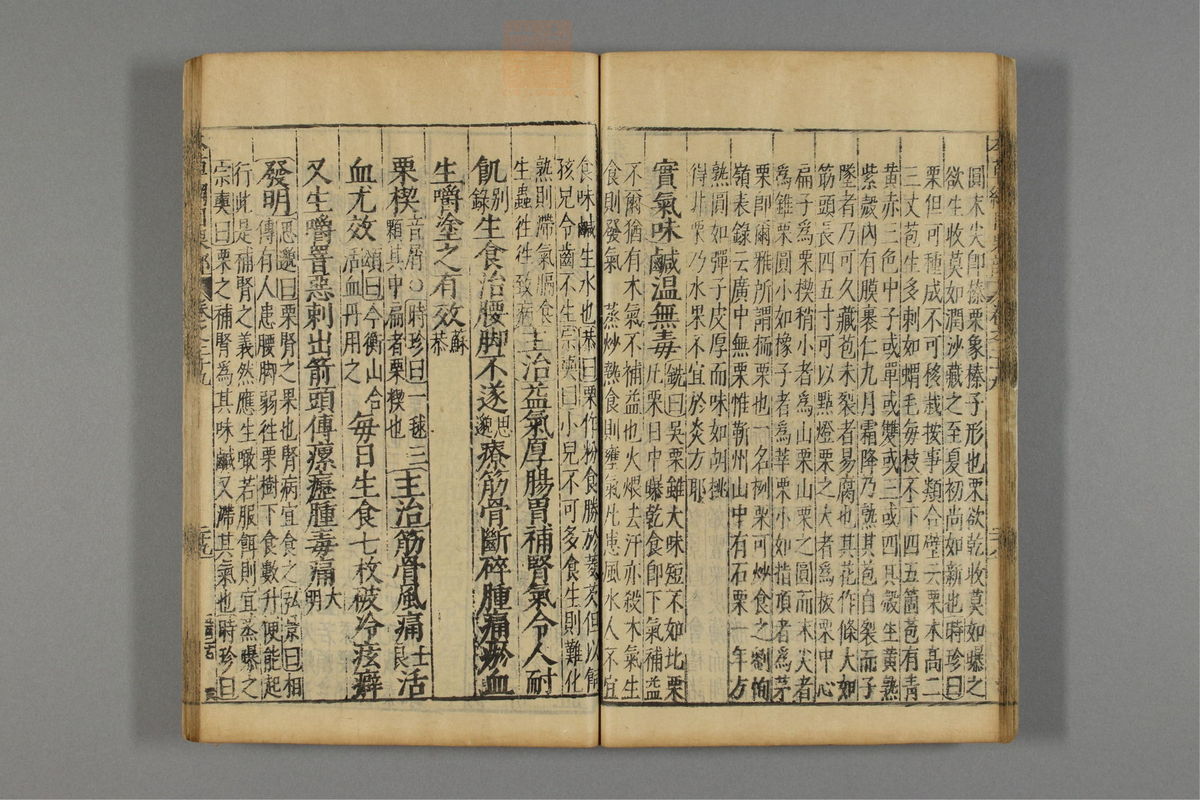 圓末尖即榛栗象榛子形也栗欲乾收莫如曝之
欲生收莫如潤沙藏之至夏初尚如新也時珍曰
栗但可種成不可移栽按事類合璧云栗木高二
三丈苞生多刺如蝟毛每枝不下四五箇苞有青
黃赤三色中子或單或雙或三或四其殼生黃熟
紫殼內有膜裹仁九月霜降乃熟其苞自裂而子
墜者乃可久藏苞未裂者易腐也其花作條大如
筋頭長四五寸可以點燈栗之大者爲板栗中心
扁子爲栗楔稍小者爲山栗山栗之圓而末尖者
爲錐栗圓小如橡子者爲莘栗小如指頂者爲茅
栗即爾雅所謂栭栗也一名栵栗可炒食之劉恂
嶺表錄云廣中無栗惟勤州山中有石栗一年方
熟圓如彈子皮厚而味如胡桃
得非栗乃水果不宜於炎方耶
實氣味鹹温無毒
詵曰吳栗雖大味短不如北栗
凡栗日中曝乾食即下氣補益
不爾猶有木氣不補益也火煨去汗亦殺木氣生
食則發氣 蒸炒熟食則壅氣凡患風水人不宜
食味鹹生水也恭曰栗作粉食勝於菱芡但以飼
孩兒令齒不生宗奭曰小兒不可多食生則難化
熟則滯氣膈食
生蟲往往致病
主治益氣厚腸胃補腎氣令人耐
飢别錄生食治腰脚不遂思邈療筋骨斷碎腫痛瘀血
生嚼塗之有效蘇恭
栗楔
音屑○時珍曰一毬三
顆其中扁者栗楔也
主治筋骨風痛士良活
血尤效
頌曰今衡山合
活血丹用之
每日生食七枚破冷痃癖
又生嚼罯惡刺出箭頭傅瘰癧腫毒痛大明
發明
思邈曰栗腎之果也腎病宜食之弘景曰相
傳有人患腰脚弱往栗樹下食數升便能起
行此是補腎之義然應生噉若服餌則宜蒸曝之
宗奭曰栗之補腎爲其味鹹又滯其氣也時珍曰